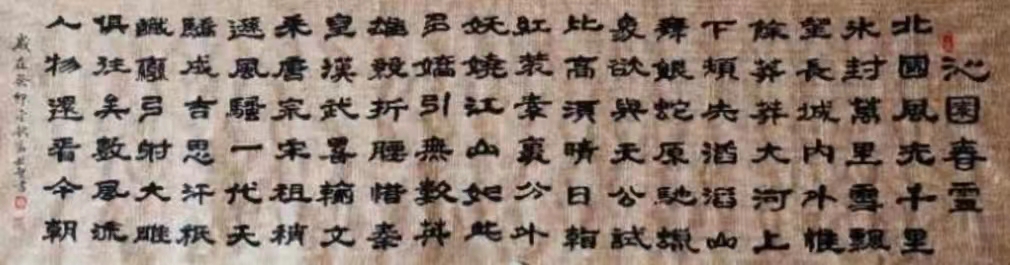 沁園春雪
北國風光千里
氷封萬里雪飄
望長城內外惟
餘莽莽大河上
下頓失滔滔山
舞銀蛇原馳蠟
象欲與天公試
比高須晴日看
紅裝素裹分外
妖嬈江山如此
多嬌引無數英
雄競折腰惜秦
皇漢武畧輸文
采唐宗宋祖稍
遜風騷一代天
驕成吉思汗祇
識彎弓射大雕
俱往矣數風流
人物還看今朝
歲在癸卯